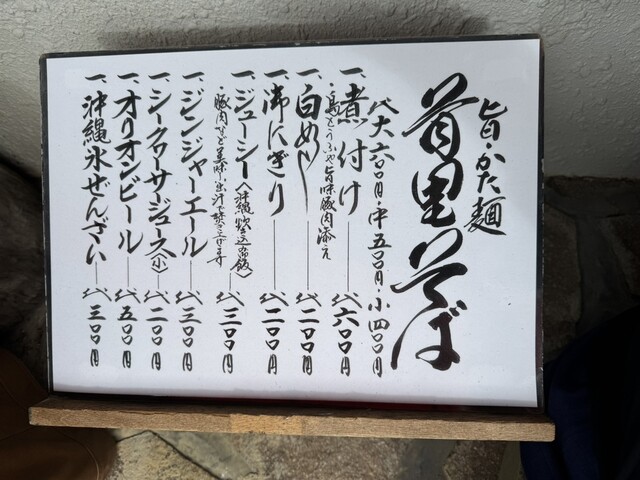 旨・かた麺
首里そば
代大六〇〇円・中五〇〇円・小四〇〇円
一、煮付け――代六〇〇円
・島とうふや旨味豚肉添え
一、白めし――代二〇〇円
一、御にぎり――代二〇〇円
一、ジューシー〈沖縄炊き込み御飯〉代三〇〇円
・豚肉などを美味し出汁で炊き上げます
一、ジンジャーエール――代三〇〇円
一、シークヮーサージュース(小)――代二〇〇円
一、オリオンビール――代五〇〇円
一、沖縄氷ぜんざい――代三〇〇円